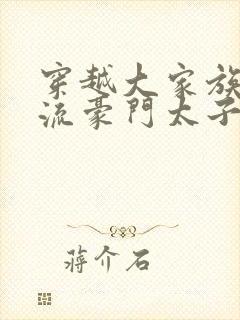 穿越大家族
流豪門太子
蔣介石